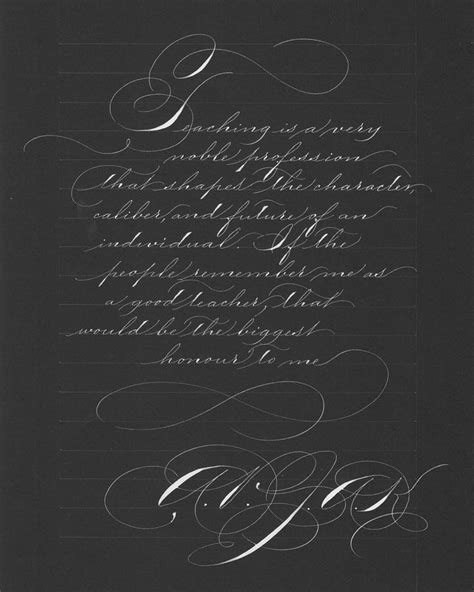 Teaching is a very
noble profession
that shapes the character,
caliber, and future of an
individual. If the
people remember me as
a good teacher, that
would be the biggest
honour to me
A.P.J.A.K